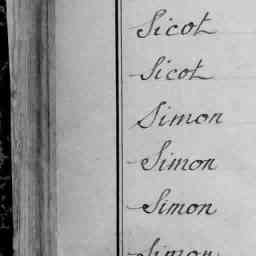 Sicot
Sicot
Simon
Simon
Simon
Simon